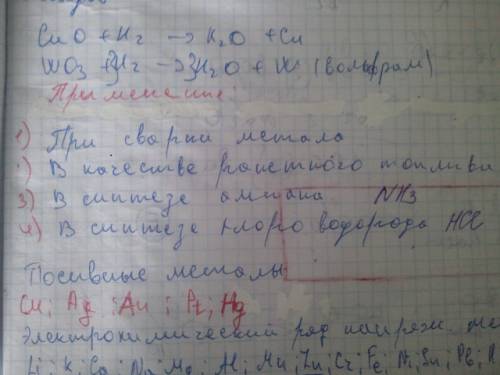 CuO + H₂ → H₂O + Cu
WO₃ + 3H₂ → 3H₂O + W (вольфрам)
Применение:
1) При сварки метала
) В качестве ракетного топлива
3) В синтезе амиака NH₃
4) В синтезе хлоро водорода HCl
Пасивные металы
Cu; Ag; Au; Pt; Hg
Электрохимический ряд напряж.
Li; K; Ca; Na; Mg; Al; Mn; Zn; Cr; Fe; Ni; Sn; Pb;